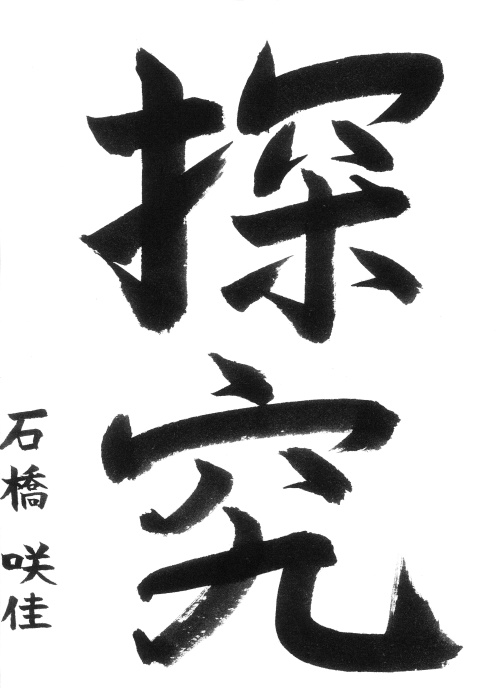 探究
石橋咲佳